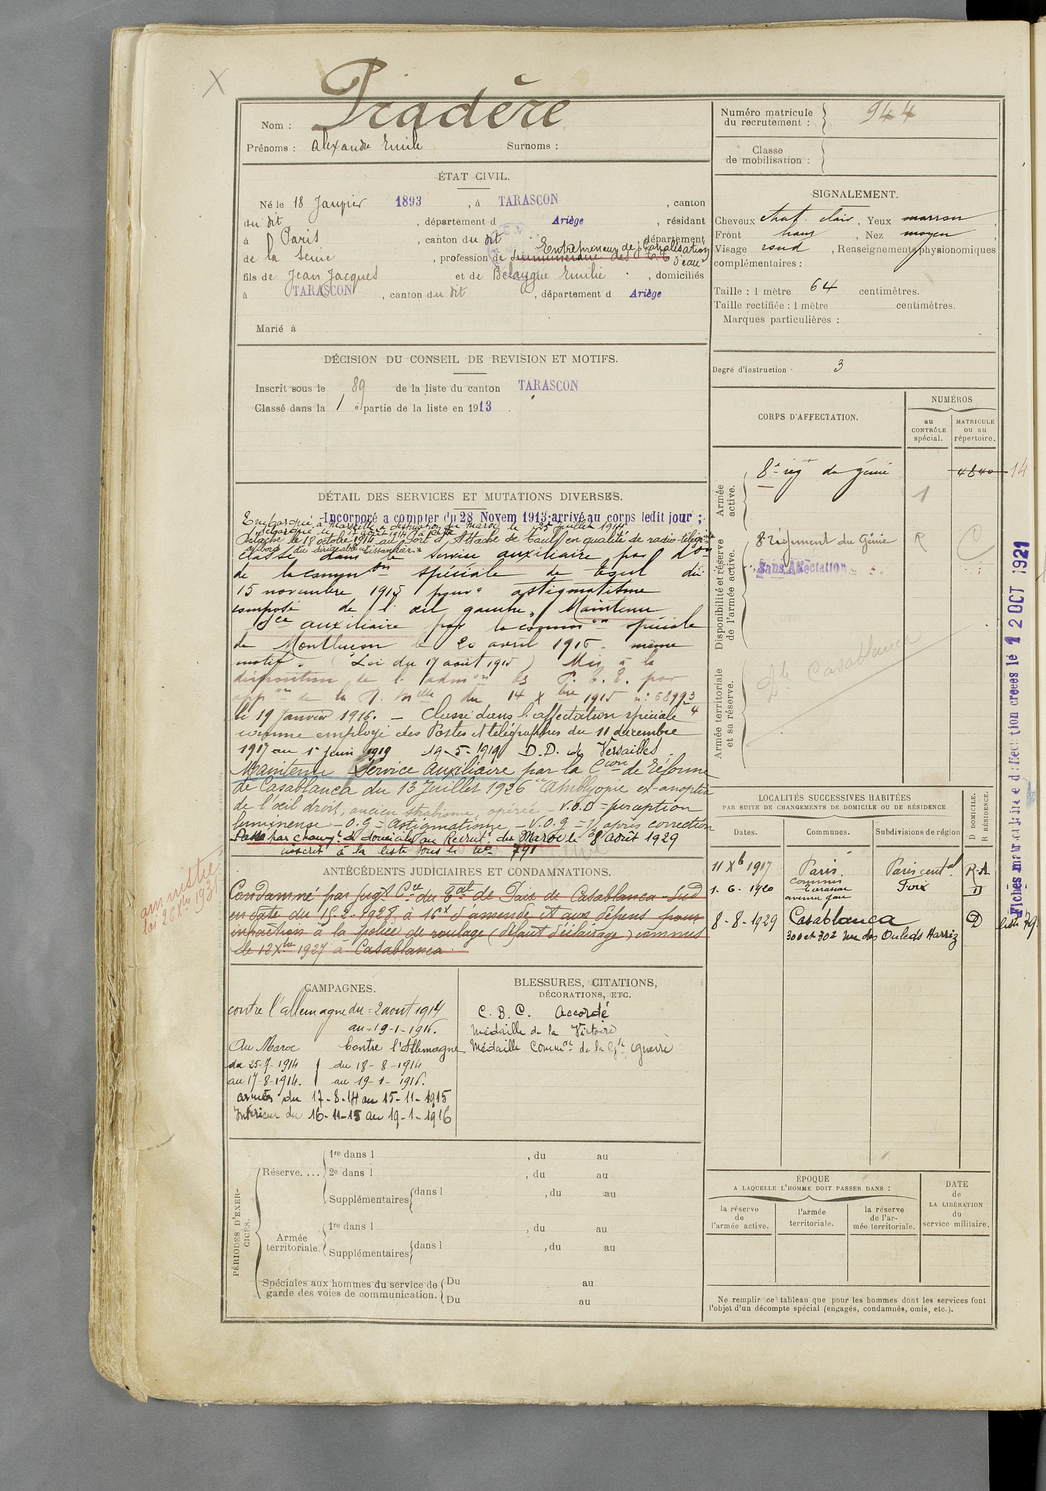 X
Nom : Pradère
Prénoms : Alexandre Emile Surnoms :
ÉTAT CIVIL.
Né le 18 Janvier 1893, à TARASCON, canton
du dit, département d Ariège, résidant
à Paris, canton du dit, département
de la Seine, profession de Entrepreneur de Canalisation d'eau
fils de Jean Jacques et de Belaygue Emilie, domiciliés
à TARASCON, canton du dit, département d Ariège
Marié à
DÉCISION DU CONSEIL DE REVISION ET MOTIFS.
Inscrit sous le n° 89 de la liste du canton TARASCON
Classé dans la 1e partie de la liste en 1913.
DÉTAIL DES SERVICES ET MUTATIONS DIVERSES.
Incorporé a compter du 28 Novem 1913 arrivé au corps ledit jour ;
Embarqué à Marseille à destination du Maroc le 25 juillet 1914
Détaché le 18 octobre 1914 au Fort d'Attaobe de Cauly en qualité de radio-télég
à bord du dirigeable
Classé dans le service auxiliaire par don
de la common spéciale de Toul du
15 novembre 1915 pour " astigmatisme
composé de l'œil gauche". Maintenu
Sce auxiliaire par la commion spéciale
de Montluçon le 20 avril 1915 même
motif. (Loi du 17 août 1915) Mis à la
disposition de l'admon des P. T. T. par
de la D. Mlle du 14 Xbre 1915 n° 68993
le 19 Janvier 1916. — Classé dans l'affectation spéciale
comme employé des Postes et télégraphes du 11 décembre
1917 au 1er juin 1919 19-5-1919 D.D. de Versailles
Maintenu Service Auxiliaire par la Cion de Réforme
de Casablanca du 13 Juillet 1926 "Amblyopie ex-anopsie
de l'œil droit, ancien strabisme, opéré — V.O.D = perception
lumineuse — O.G = Astigmatisme — V.O.G = après correction
Passé par changt de domicile au Recrut. du Maroc le 8 Août 1929
inscrit à la liste sous le no 791
ANTÉCÉDENTS JUDICIAIRES ET CONDAMNATIONS.
Condamné par jugt Cre du Bal de Paix de Casablanca-Sud
en date du 15-2-1928 à 16f d'amende et aux dépens pour
infraction à la police de roulage (défaut d'éclairage) commis
le 12 Xbre 1927 à Casablanca.
amnistié
loi 26 Xbre 1931
CAMPAGNES.
contre l'allemagne du 2 aout 1914
au 19-1-1916.
Au Maroc Contre l'Allemagne
du 25-7-1914 du 18-8-1914
au 17-8-1914. au 19-1-1916.
armées du 17-8-14 au 15-11-1915
Intérieur du 16-11-15 au 19-1-1916
BLESSURES, CITATIONS,
DÉCORATIONS, ETC.
C. B. C. Accordé
Médaille de la Victoire
Médaille Commve de la Gde Guerre
PÉRIODES D'EXERCICES.
Réserve....
1re dans l , du au
2e dans l , du au
Supplémentaires dans l , du au
Armée territoriale.
1re dans l , du au
Supplémentaires dans l , du au
Spéciales aux hommes du service de garde des voies de communication.
Du au
Du au
Numéro matricule du recrutement : 944
Classe de mobilisation :
SIGNALEMENT.
Cheveux chat. clair, Yeux marron
Front haut, Nez moyen
Visage rond, Renseignements physionomiques
complémentaires :
Taille : 1 mètre 64 centimètres.
Taille rectifiée : 1 mètre centimètres.
Marques particulières :
Degré d'instruction 3
CORPS D'AFFECTATION.
NUMÉROS
au CONTRÔLE spécial.
MATRICULE ou au répertoire.
Armée active.
8e régt du Génie 4840 14
Disponibilité et réserve de l'armée active.
8e régiment du Génie R
Sans Affectation
Armée territoriale et sa réserve.
Dt Casablanca
LOCALITÉS SUCCESSIVES HABITÉES
PAR SUITE DE CHANGEMENTS DE DOMICILE OU DE RÉSIDENCE
Dates. Communes. Subdivisions de région D DOMICILE. R RÉSIDENCE.
11 Xb 1917 Paris Paris central R.A.
1-6-1920 Tarascon Foix D
avenue gare
8-8-1929 Casablanca D liste 791
300 et 302 rue des Ouleds Harriz
ÉPOQUE
A LAQUELLE L'HOMME DOIT PASSER DANS :
la réserve de l'armée active. l'armée territoriale. la réserve de l'armée territoriale.
DATE de LA LIBÉRATION du service militaire.
Ne remplir ce tableau que pour les hommes dont les services font
l'objet d'un décompte spécial (engagés, condamnés, omis, etc.).
12 OCT 1921